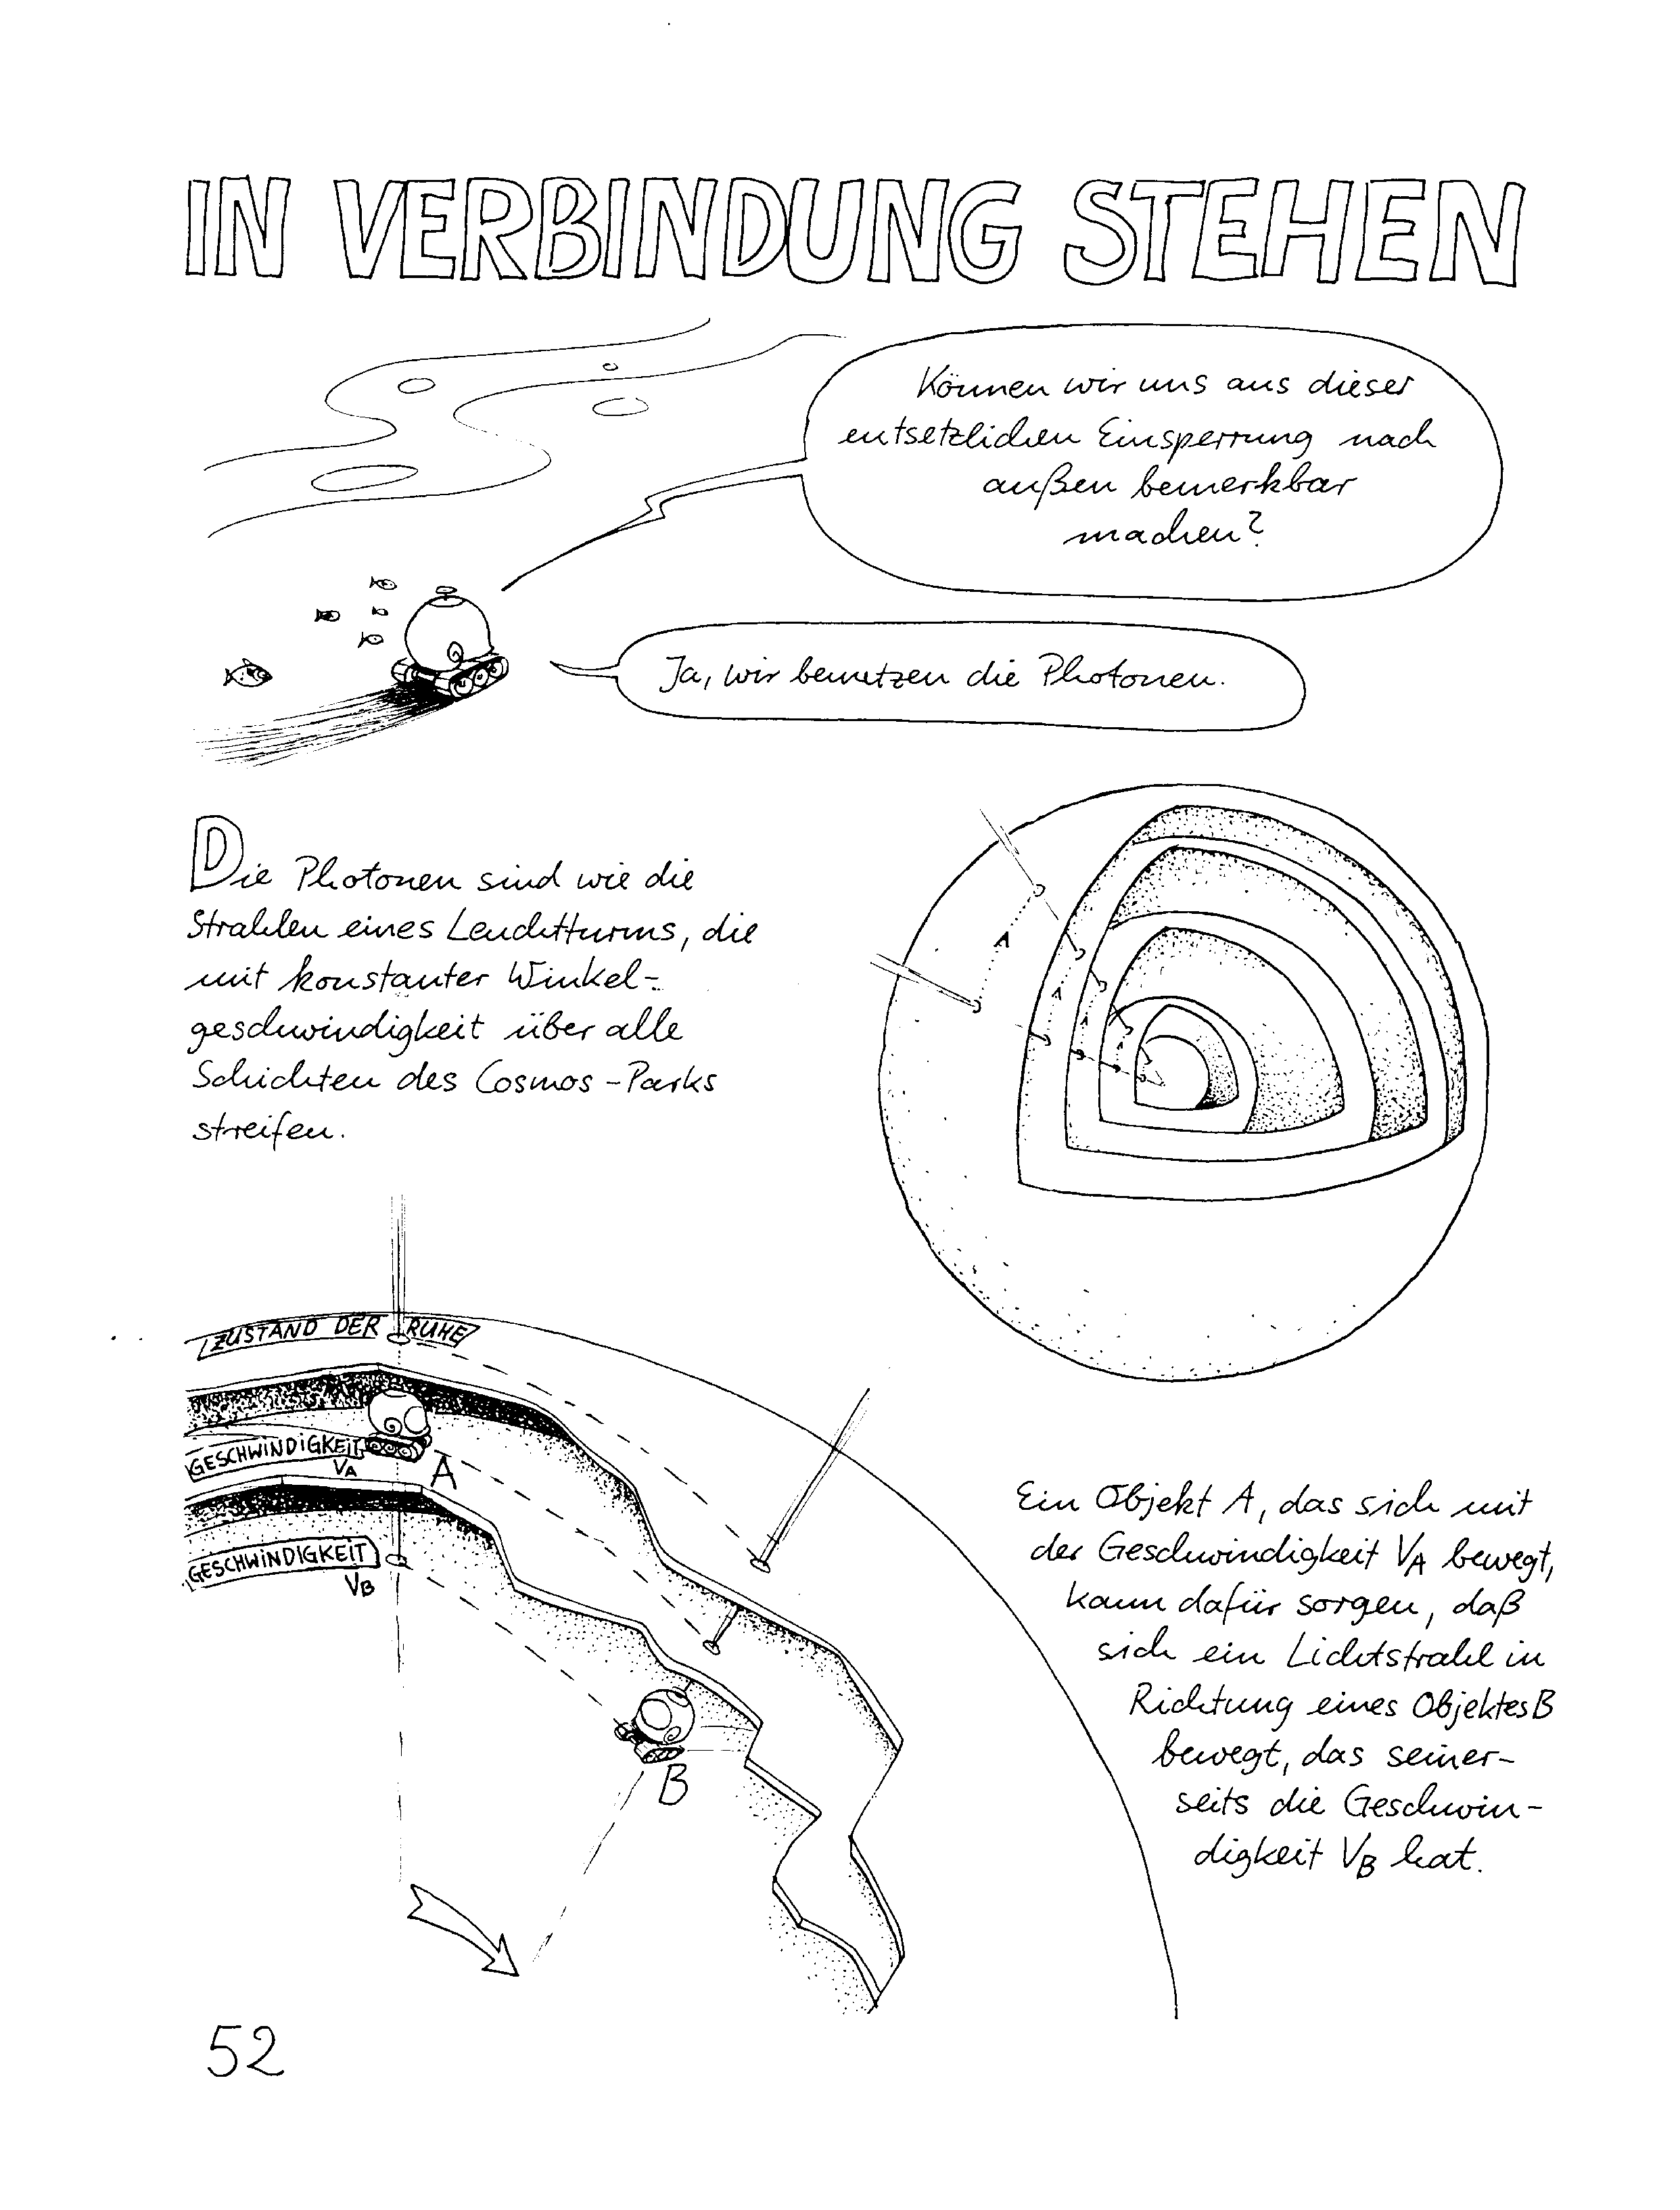 IN VERBINDUNG STEHEN
Können wir uns aus dieser
entsetzlichen Einsperrung nach
außen bemerkbar
machen?
Ja, wir benutzen die Photonen.
Die Photonen sind wie die
Strahlen eines Leuchtturms, die
mit konstanter Winkel-
geschwindigkeit über alle
Schichten des Cosmos-Parks
streifen.
A
A
A
A
ZUSTAND DER RUHE
GESCHWINDIGKEIT
VA
A
GESCHWINDIGKEIT
VB
B
Ein Objekt A, das sich mit
der Geschwindigkeit VA bewegt,
kann dafür sorgen, daß
sich ein Lichtstrahl in
Richtung eines Objektes B
bewegt, das seiner-
seits die Geschwin-
digkeit VB hat.
52